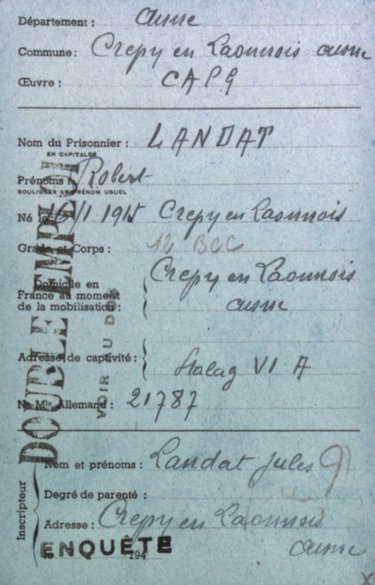 Département : Aisne
Commune : Crepy en Laonnois Aisne
Œuvre : CAPG
Nom du Prisonnier : LANDAT
EN CAPITALES
Prénoms : Robert
SOULIGNER LE PRÉNOM USUEL
Né le 1915 Crepy en Laonnois
Grade et Corps : 12 BCC
Domicile en
France au moment
de la mobilisation :
Crepy en Laonnois
Aisne
Adresse de captivité : Stalag VI A
No Mle Allemand : 21787
DOUBLE EMPLOI
VOIR DU DOS
Inscripteur
Nom et prénoms : Landat Jules
Degré de parenté :
Adresse : Crepy en Laonnois
Aisne
ENQUÊTE
194